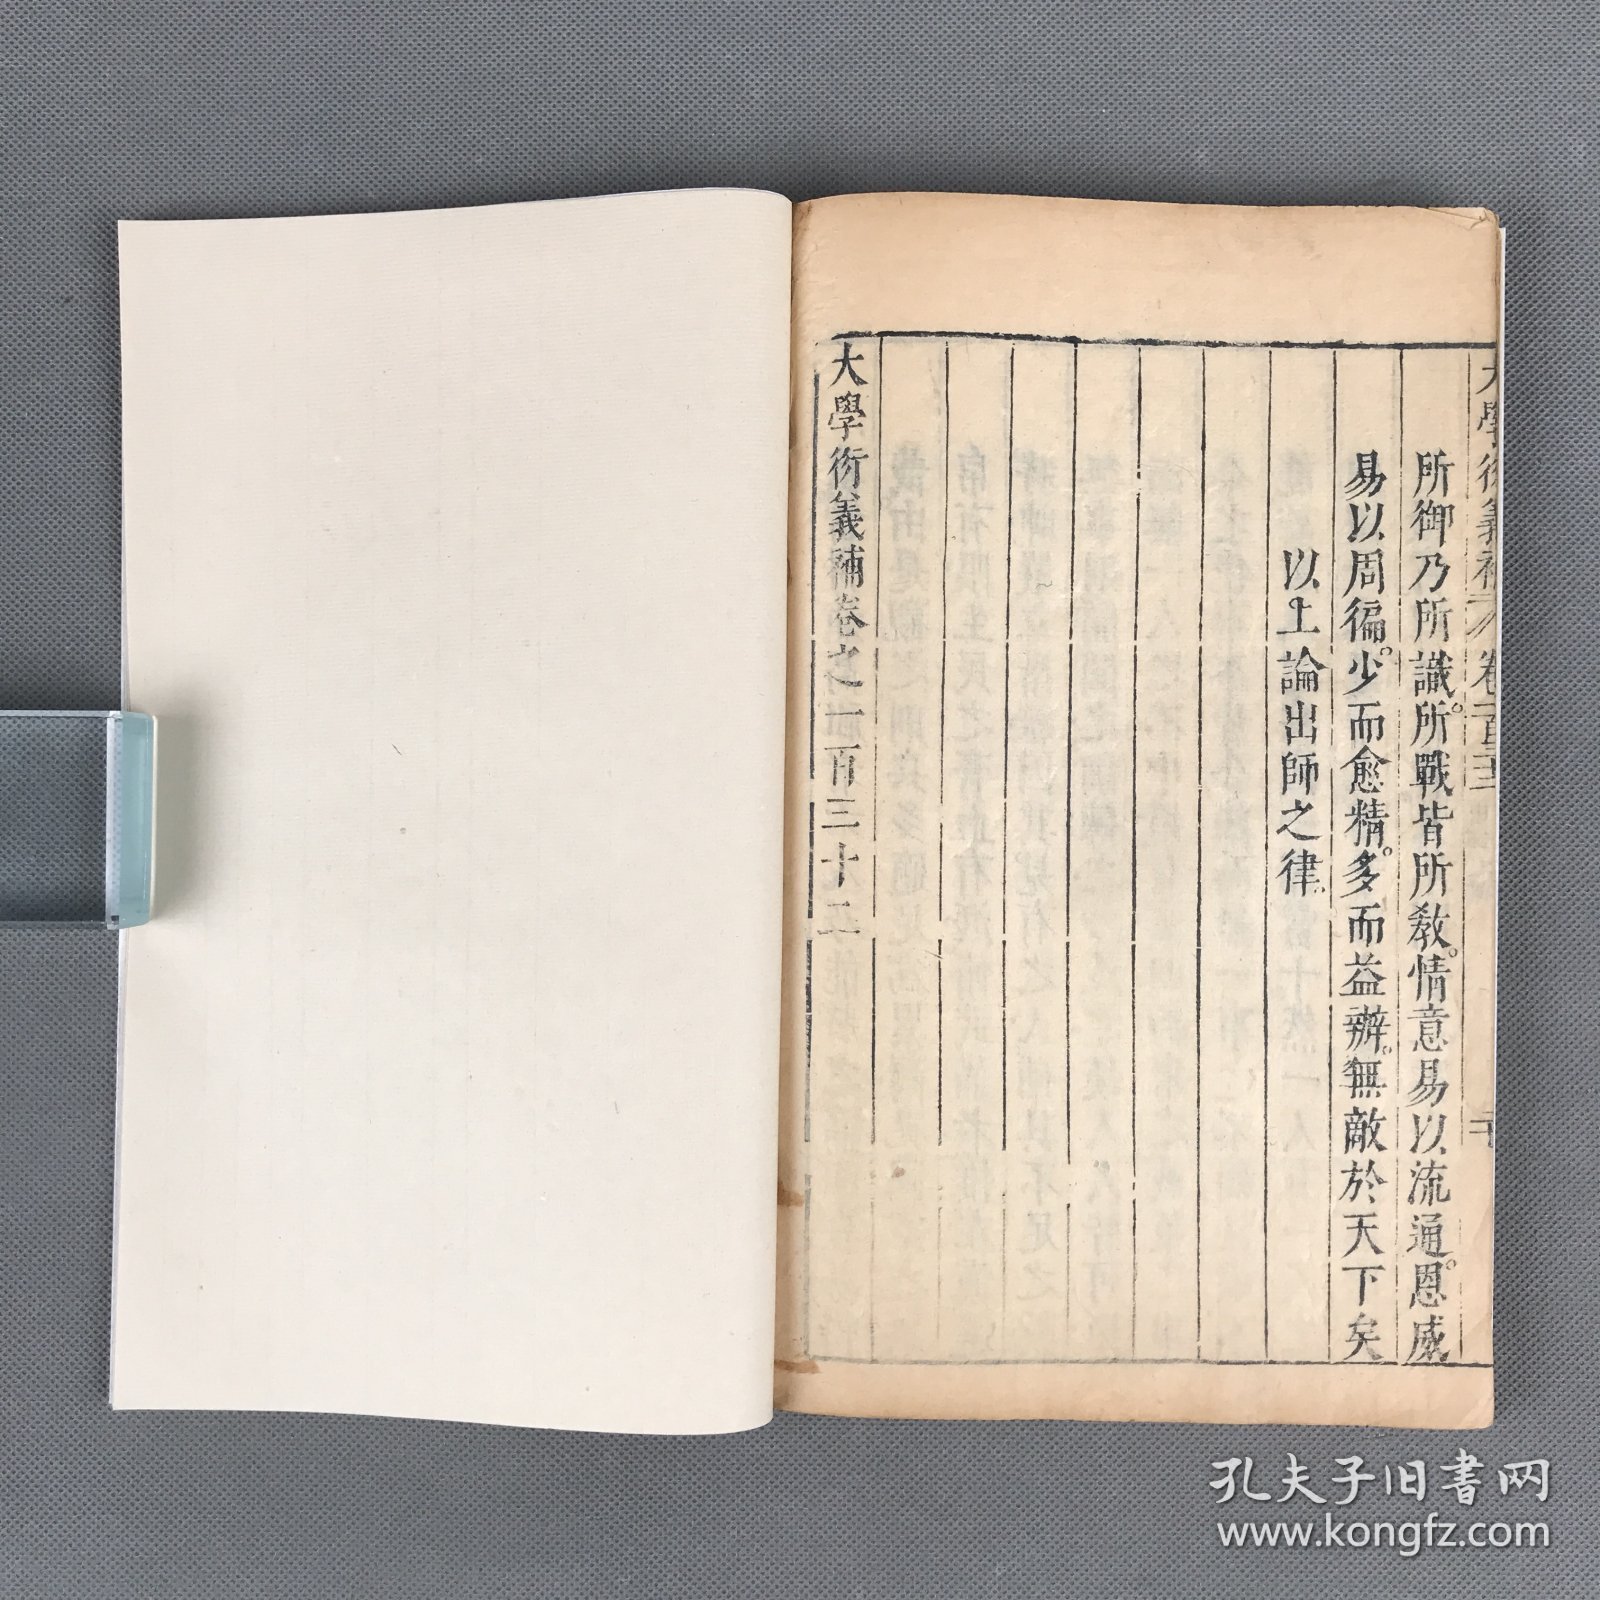 所御乃所識。所戰皆所教。情意易以流通。恩威
易以周徧。少而愈精。多而益辦。無敵於天下矣
以上論出師之律。
大學衍義補卷之一百三十二
孔夫子旧书网
www.kongfz.com